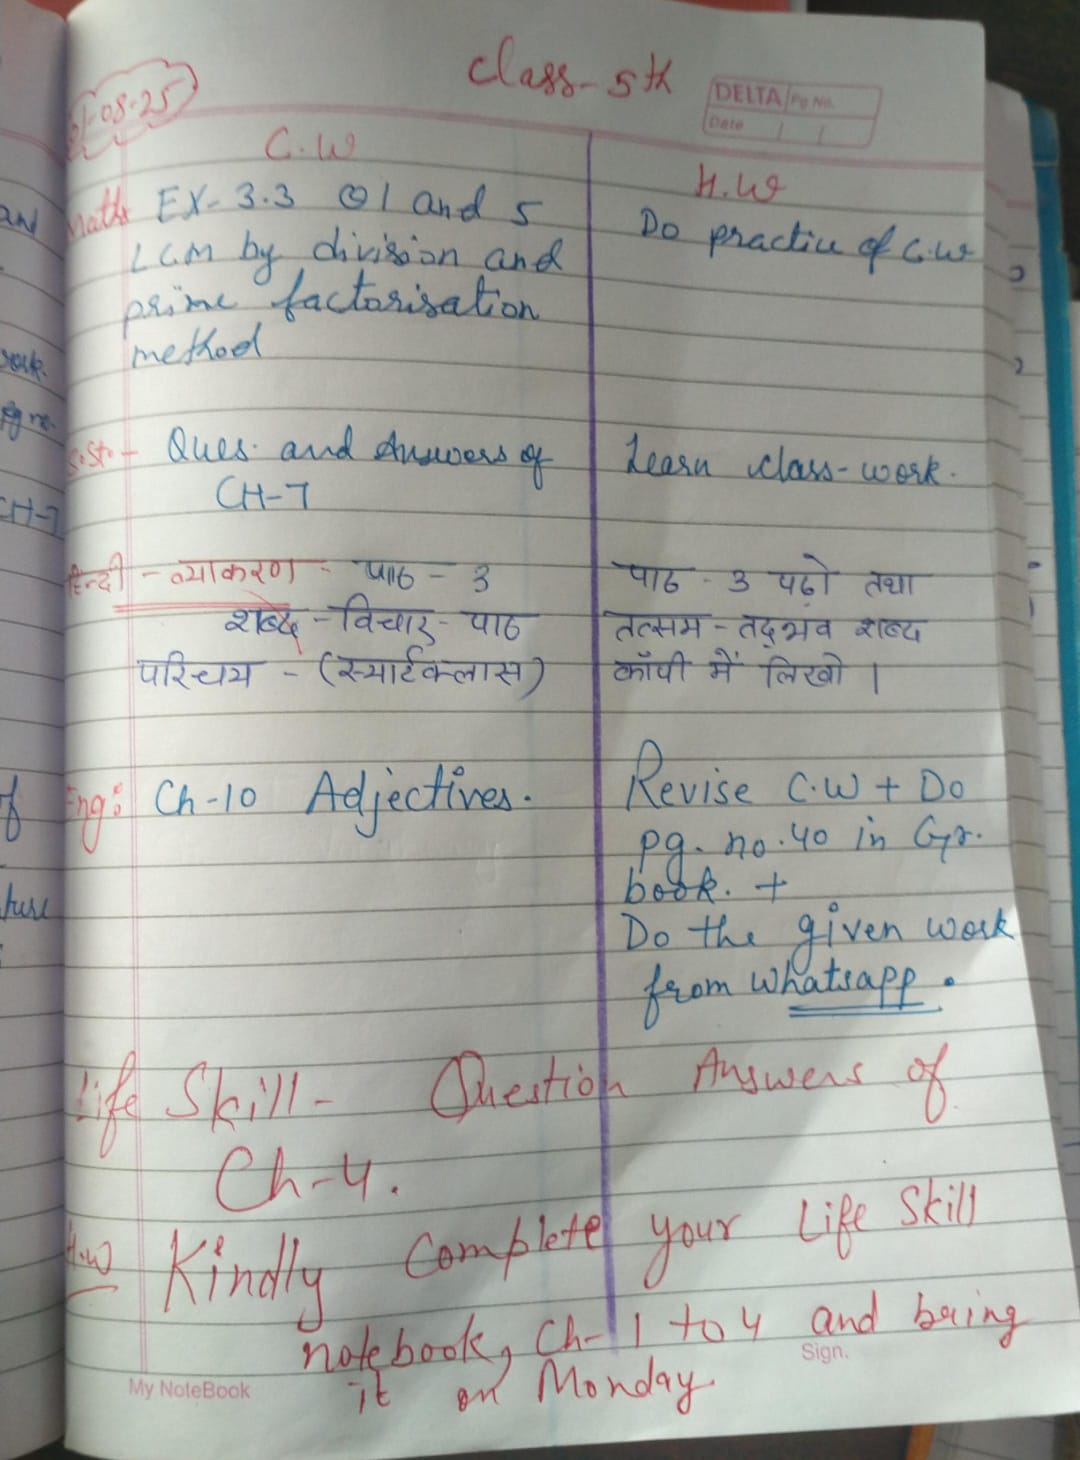 Class-5th
DELTA Pg No.
Date
01-08-25
C.W
H.W
Maths EX-3.3 Q1 and 5
LCM by division and
prime factorisation
method
Do practice of C.W
S.St.- Ques. and Answers of
CH-7
Learn class-work.
हिन्दी - व्याकरण - पाठ - 3
शब्द - विचार - पाठ
परिचय - (स्मार्टक्लास)
पाठ - 3 पढ़ो तथा
तत्सम - तद्भव शब्द
कॉपी में लिखो ।
Eng: Ch-10 Adjectives.
Revise C.W + Do
pg. no. 40 in Gr.
book. +
Do the given work
from whatsapp.
Life Skill - Question Answers of
Ch-4.
H.W Kindly Complete your Life Skill
notebook, Ch-1 to 4 and bring
it on Monday.
Sign.
My NoteBook